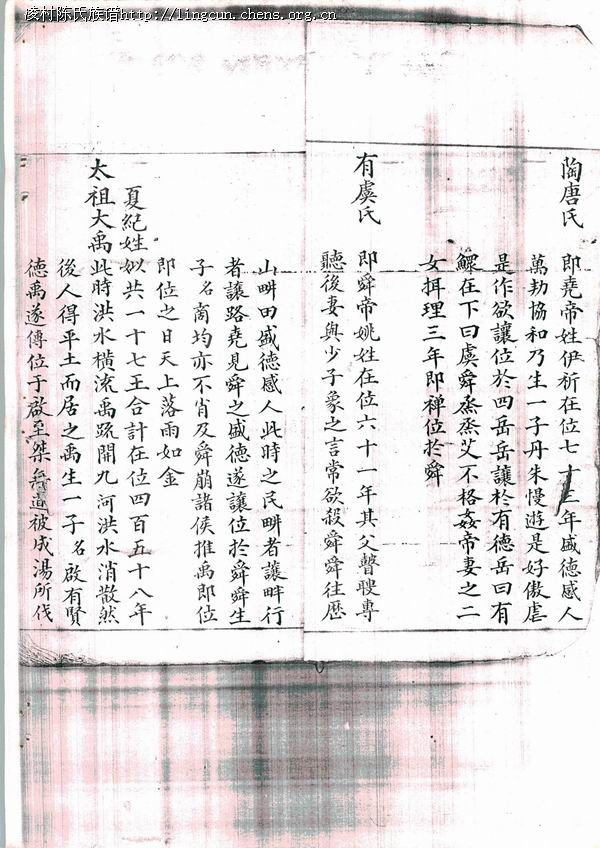 凌村陈氏族谱http://lingcun.chens.org.cn
陶唐氏 即堯帝姓伊祈在位七十三年盛德感人
萬劫協和乃生一子丹朱慢遊是好傲虐
是作欲讓位於四岳岳讓於有德岳曰有
鰥在下曰虞舜烝烝艾不格姦帝妻之二
女揖理三年即禅位於舜
有虞氏 即舜帝姚姓在位六十一年其父瞽
聽後妻與少子象之言常欲殺舜舜往歷
山畊田盛德感人此時之民畊者讓畔行
者讓路堯見舜之盛德遂讓位於舜舜生
子名商均亦不肖及舜崩諸侯推禹即位
即位之日天上落雨如金
夏紀姓姒共一十七王合計在位四百五十八年
太祖大禹此時洪水橫流禹疏開九河洪水消散然
後人得平土而居之禹生一子名啟有賢
德禹遂傳位于啟至桀無道被成湯所伐